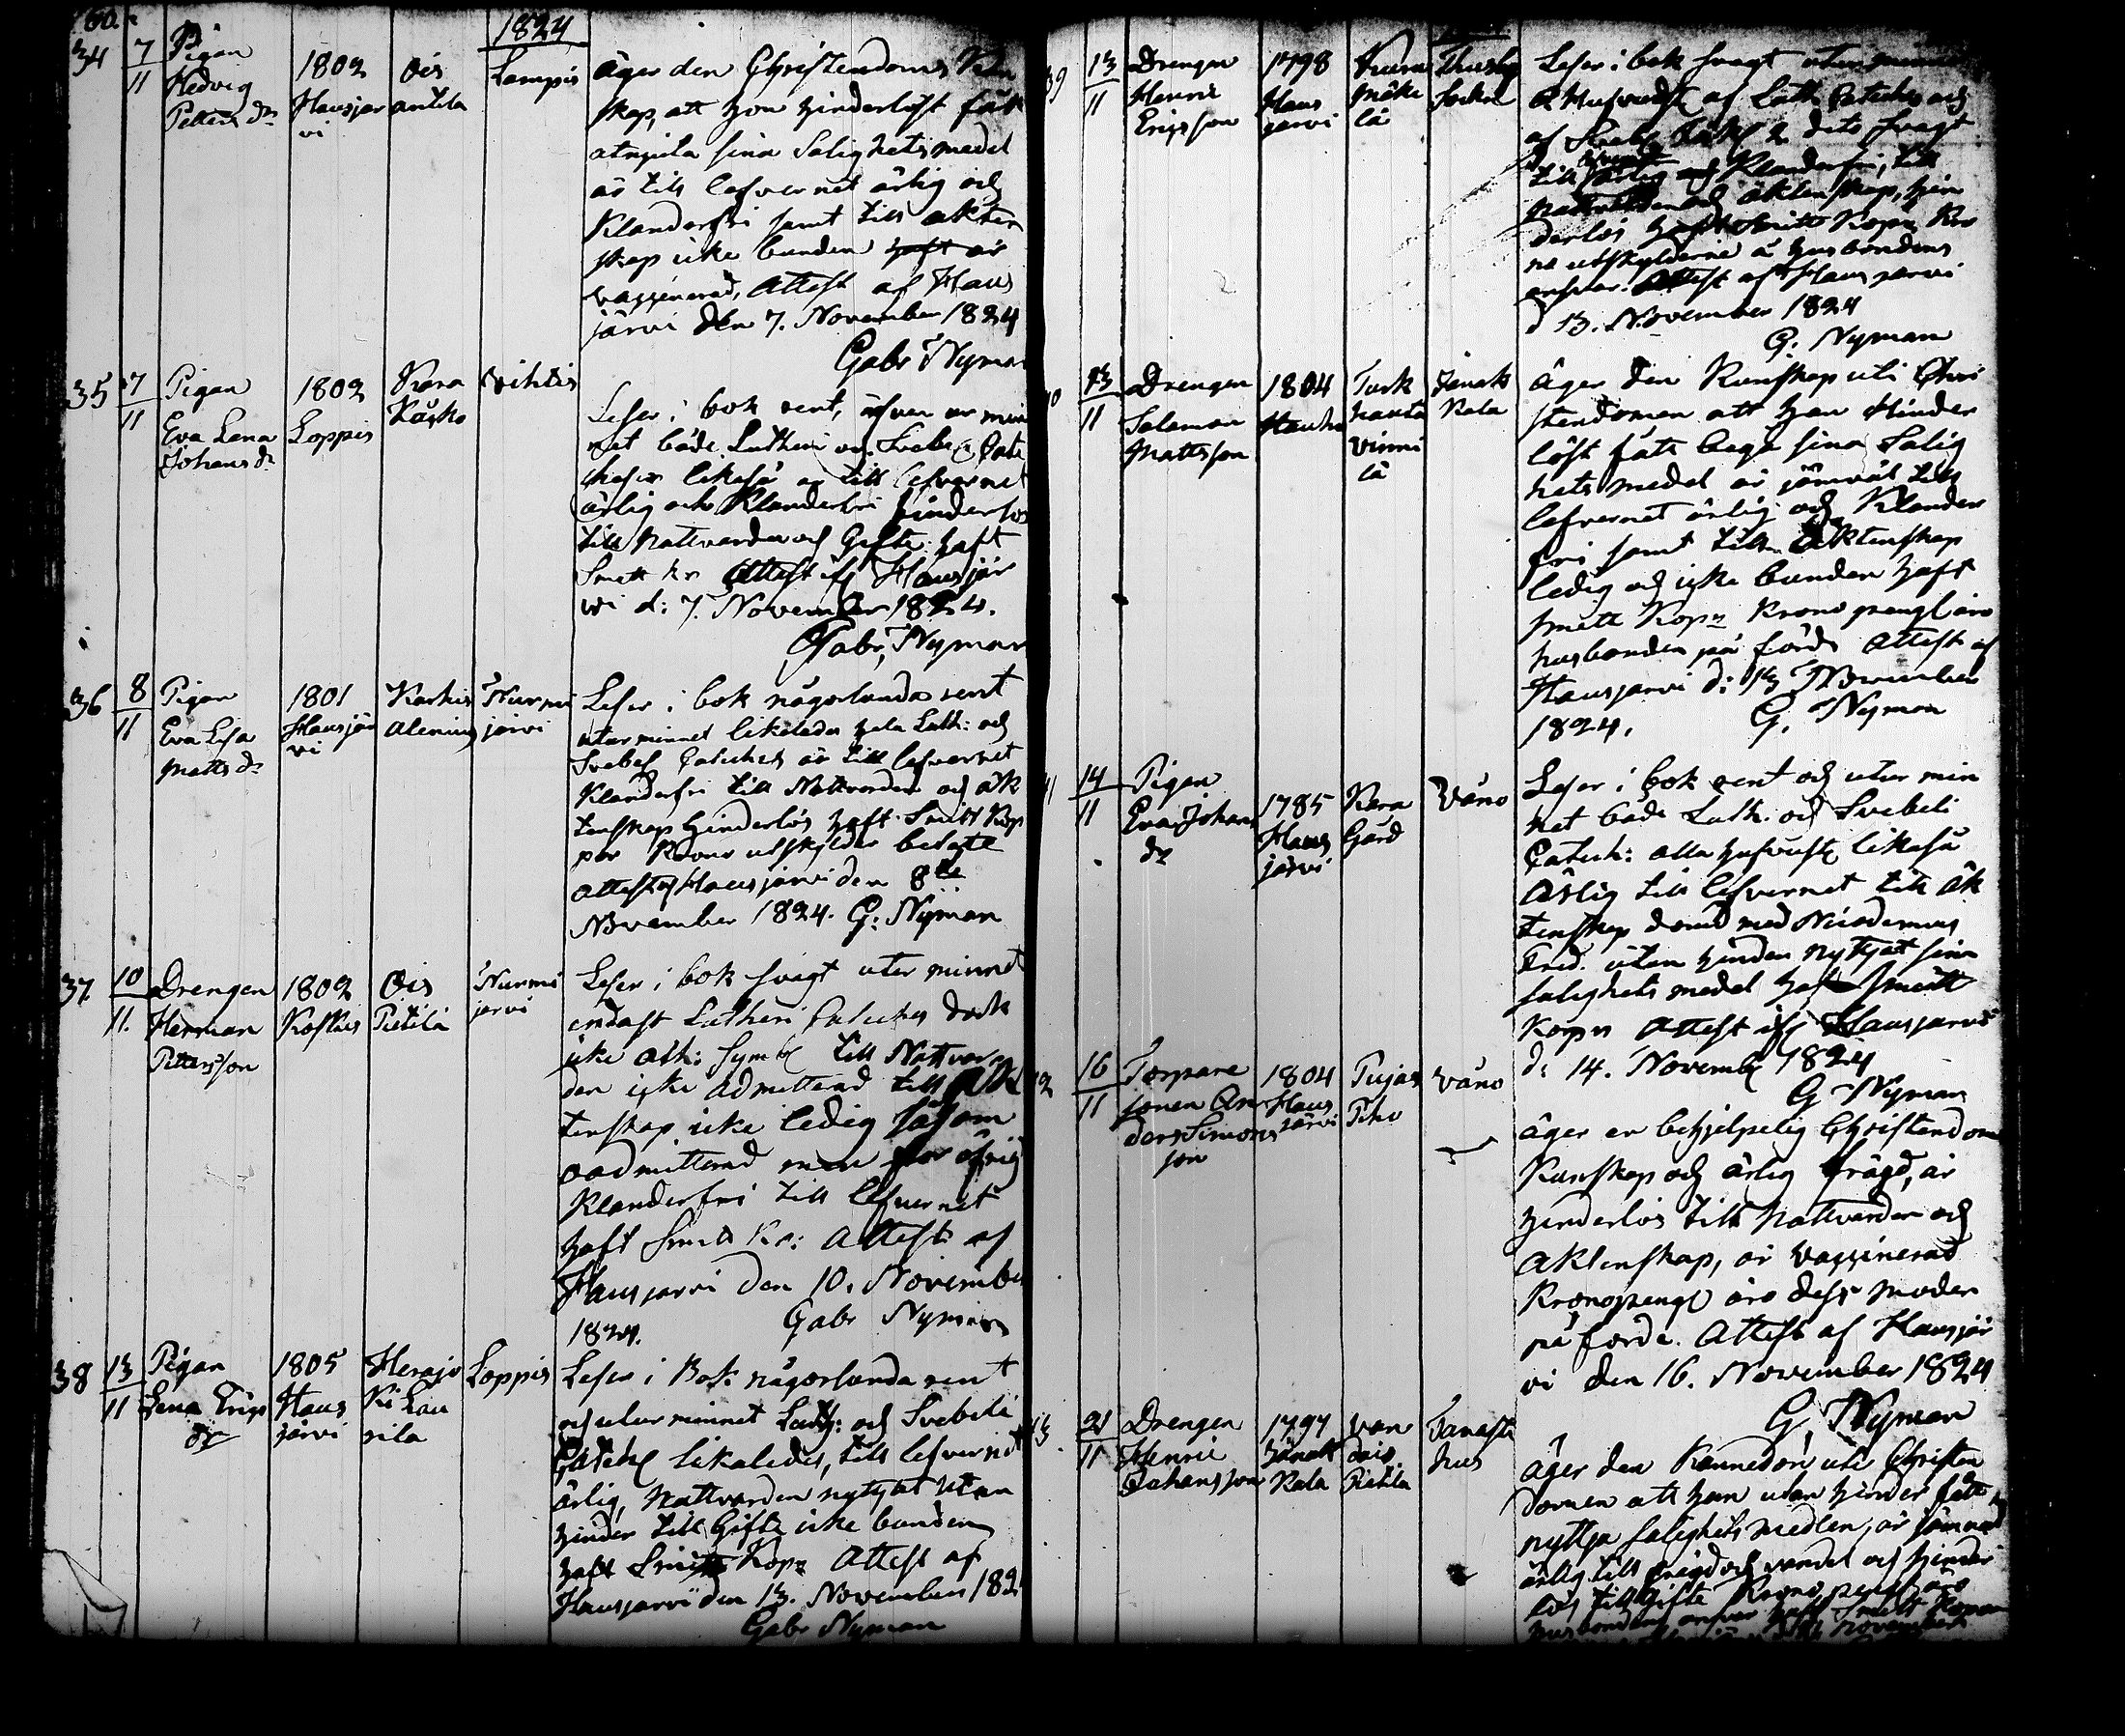 60.
1824
34 7/11 Pigan Hedvig Petters dr 1802 Hausjarvi Ois antila Lampis
äger den Christendoms Kun
skap, att hon hinderlöst fått
atnjuta sina Salighetsmedel
är till lefvernet ärlig och
Klanderfri samt till äkten
skap icke bunden haft är
vaccinerad, Attest af Haus
järvi den 7. November 1824
Gabr Nyman
35 7/11 Pigan Eva Lena Johans dr 1802 Loppis Kara Käsko Vihtis
Läser i bok rent, äfven ur min
net både Lutheri och Svebe Cate
cheser likaså är till lefvernet
ärlig och Klanderfri hinderlös
till Nattvarden och Gifte haft
Smitt kr Attest af Hausjär
wi d: 7. November 1824.
Gabr, Nyman
36 8/11 Pigan Eva Lisa Matts dr 1801 Hausjärvi Karhis Alenius Nurmijärvi
Läser i bok någorlunda rent
utur minnet likaledes hela Luth: och
Svebel Catches är till lefvernet
Klanderfri till Nattvarden och äk
tenskap hinderlös haft Smitt Kop
por Kronr utskylder betalte
Attest af Hausjärvi den 8de
November 1824. G: Nyman
37. 10/11. Drengen Herman Pettersson 1802 Koskis Ois Pietilä Nurmijervi
Läser i bok svagt utur minnet
endast Lutheri Catches dock
icke Ath: Symb till Nattvar
den icke admitterad till Äk
tenskap icke ledig såsom
oadmitterad men för öfrigt
Klanderfri till lefvernet
haft Smitt Kr: Attest af
Hausjarvi den 10. November
1824. Gabr Nyman
38 13/11 Pigan Lena Erigs dr 1805 Hausjärvi Herajoki Launila Loppis
Läser i Bok någorlunda rent
och utur minnet Luth: och Svebeli
Catech likaledes, till lefvernet
ärlig, Nattvarden nyttjat utan
hinder till Gifte icke bunden
haft Smitt Kopr Attest af
Hausjarvi den 13. November 182
Gabr Nyman
39 13/11 Drengen Henric Ericsson 1798 Hausjarvi Mäkelä Thusby Socken
Läser i bok svagt utur minne
af Luth Catches och
dito svagt
till Klanderfri, till
Nattvarden och äktenskap, hin
derlös haft Smitt Kopr Kro
no utskylderne å husbondens
ansvar. Attest af Hausjarvi
d 13. November 1824
G: Nyman
13/11 Drengen Salomon Mattsson 1804 Hauho Turkhauta Vinnilä Janakkala
äger den Kunskap uti Chri
stendomen att han hinder
löst fått begå sina Salig
hets medel är jämväl till
lefvernet ärlig och Klander
fri samt till Äktenskap
ledig och icke bunden haft
smitt Kopr Krono pengl äro
husbonden på förde Attest af
Hausjarvi d: 13 November
1824. G. Nyman
14/11 Pigan Eva Johans dr 1785 Hausjärvi Kara Gård Våno
Läser i bok rent och utur min
net både Luth. och Svebeli
Catech: alla likaså
Ärlig till lefvernet till äk
tenskap dömd med Nicodemus
Erid. utan hinder nyttjat sina
salighets medel haft smitt
Koppr Attest af Hausjarvi
d: 14. Novemb 1824
G Nyman
16/11 Torparesonen Anders Simonsson 1804 Hausjärvi Pujas Piho Våno
äger en behjelpelig Christendoms
Kunskap och ärlig frägd, är
hinderlös till Nattvarden och
Äktenskap, är vaccinerad
Kronopengl äro dess moder
på forde. Attest af Hausjär
vi den 16. November 1824
G. Nyman
21/11 Drengen Henric Johansson 1797 Janakkala Pietilä Tavastehus
äger den Kännedom uti Christen
domen att han utan hinder fått
nyttja salighets medlen, är jämväl
ärlig till frägd och vandel och hinder
lös till Gifte Krono pengl äro
husbondens ansvar haft Smitt Koppor
November